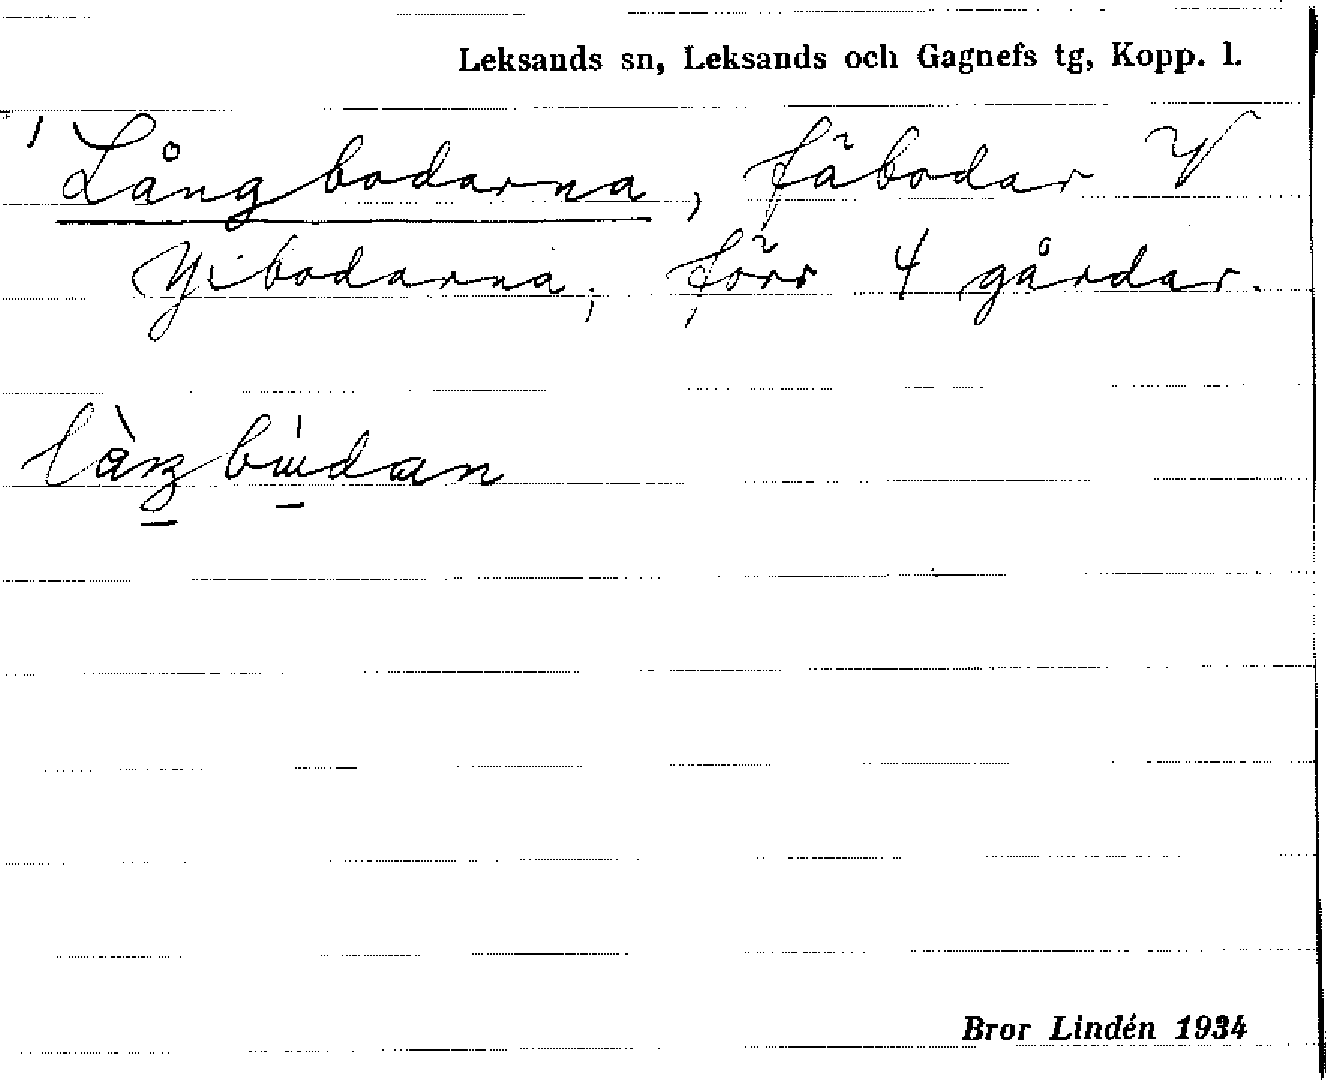 Leksands sn, Leksands och Gagnefs tg, Kopp. l.
Långbodarna, fäbodar V
Yibodarna; förr 4 gårdar.
Bror Lindén 1934